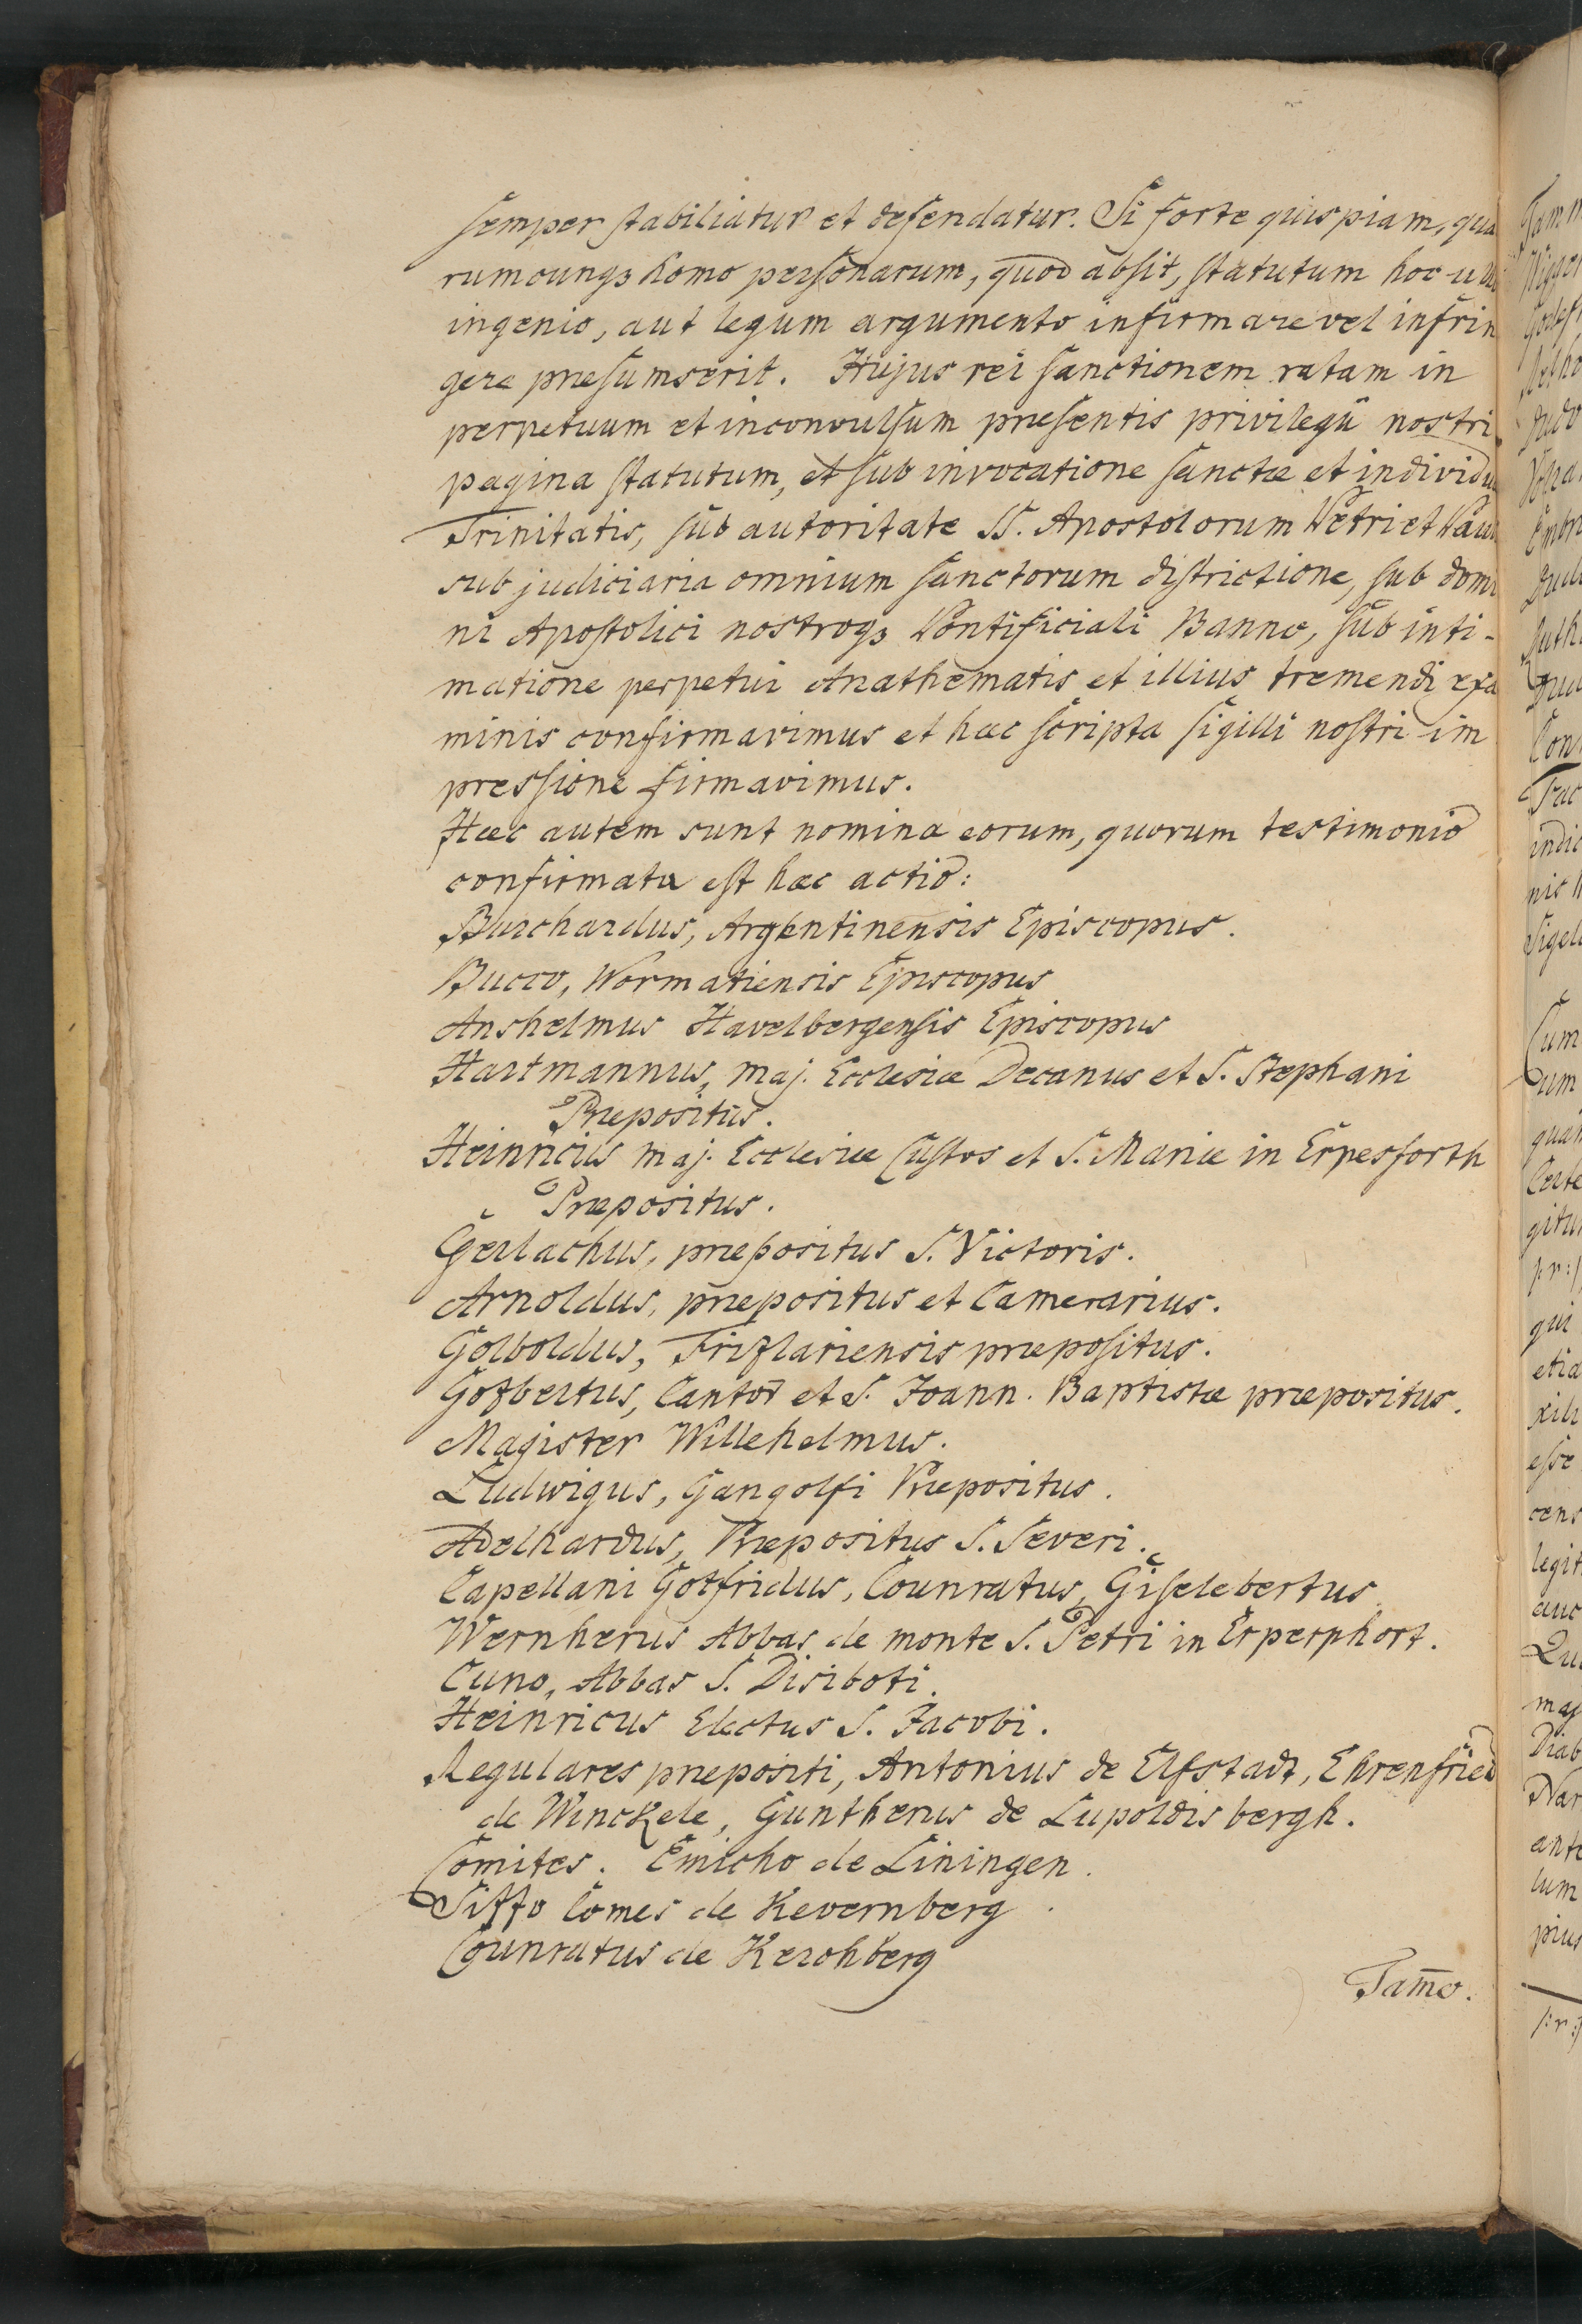 semper stabiliatur et defendatur. Si forte quispiam, qua
rumcunqz homo personarum, quod absit, statutum hoc
ingenio, aut legum argumento infirmare vel infrin
gere præsumserit. Hujus rei sanctionem ratam in
perpetuum et inconvulsum præsentis privilegii nostri
pagina statutum, et sub invocatione sanctæ et individu
Trinitatis, sub autoritate SS. Apostolorum Petri et Pau
sub judiciaria omnium sanctorum districtione, sub domi
ni Apostolici nostroqz Pontificiali Banno, sub inti-
matione perpetui Anathematis et illius tremendi exa
minis confirmavimus et hæc scripta sigilli nostri im
pressione firmavimus.
Hæc autem sunt nomina eorum, quorum testimonio
confirmata est hæc actio:
Burchardus, Argentinensis Episcopus.
Bucco, Wormatiensis Episcopus
Anshelmus Havelbergensis Episcopus
Hartmannus, maj. Ecclesiæ Decanus et S. Stephani
Præpositus.
Heinricus maj. Ecclesiæ Custos et S. Mariæ in Erpesforth
Præpositus.
Gerlachus, præpositus S. Victoris.
Arnoldus, præpositus et Camerarius.
Golboldus, Frizlariensis præpositus.
Gozbertus, Cantor et S. Joann. Baptistæ præpositus.
Magister Willehelmus.
Ludwigus, Gangolfi Præpositus.
Adelhardus, Præpositus S. Severi.
Capellani Gotfridus, Counratus, Giselebertus
Wernherus Abbas de monte S. Petri in Erperphort.
Cuno, Abbas S. Disiboti.
Heinricus Electus S. Jacobi.
Regulares præpositi, Antonius de Elfstadt, Ehrenfried
de Winckele, Guntherus de Lupoldisbergh.
Comites. Emicho de Liningen.
Sizzo Comes de Kevernberg
Counratus de Kerchberg
Tam̄o.